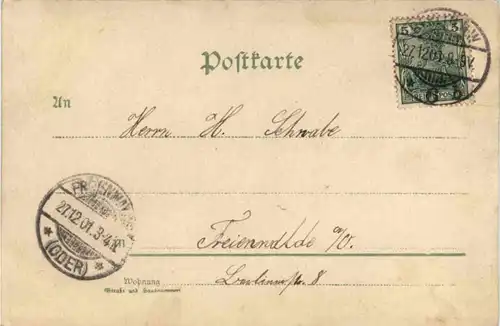 Postkarte
5 5
27.12.01.8-9V.
6 b
An
Herrn H. Schwabe
27.12.01.3-4N.
* (ODER) *
Freienwalde a/O.
Wohnung
Berlinerstr. 8
(Straße und Hausnummer)